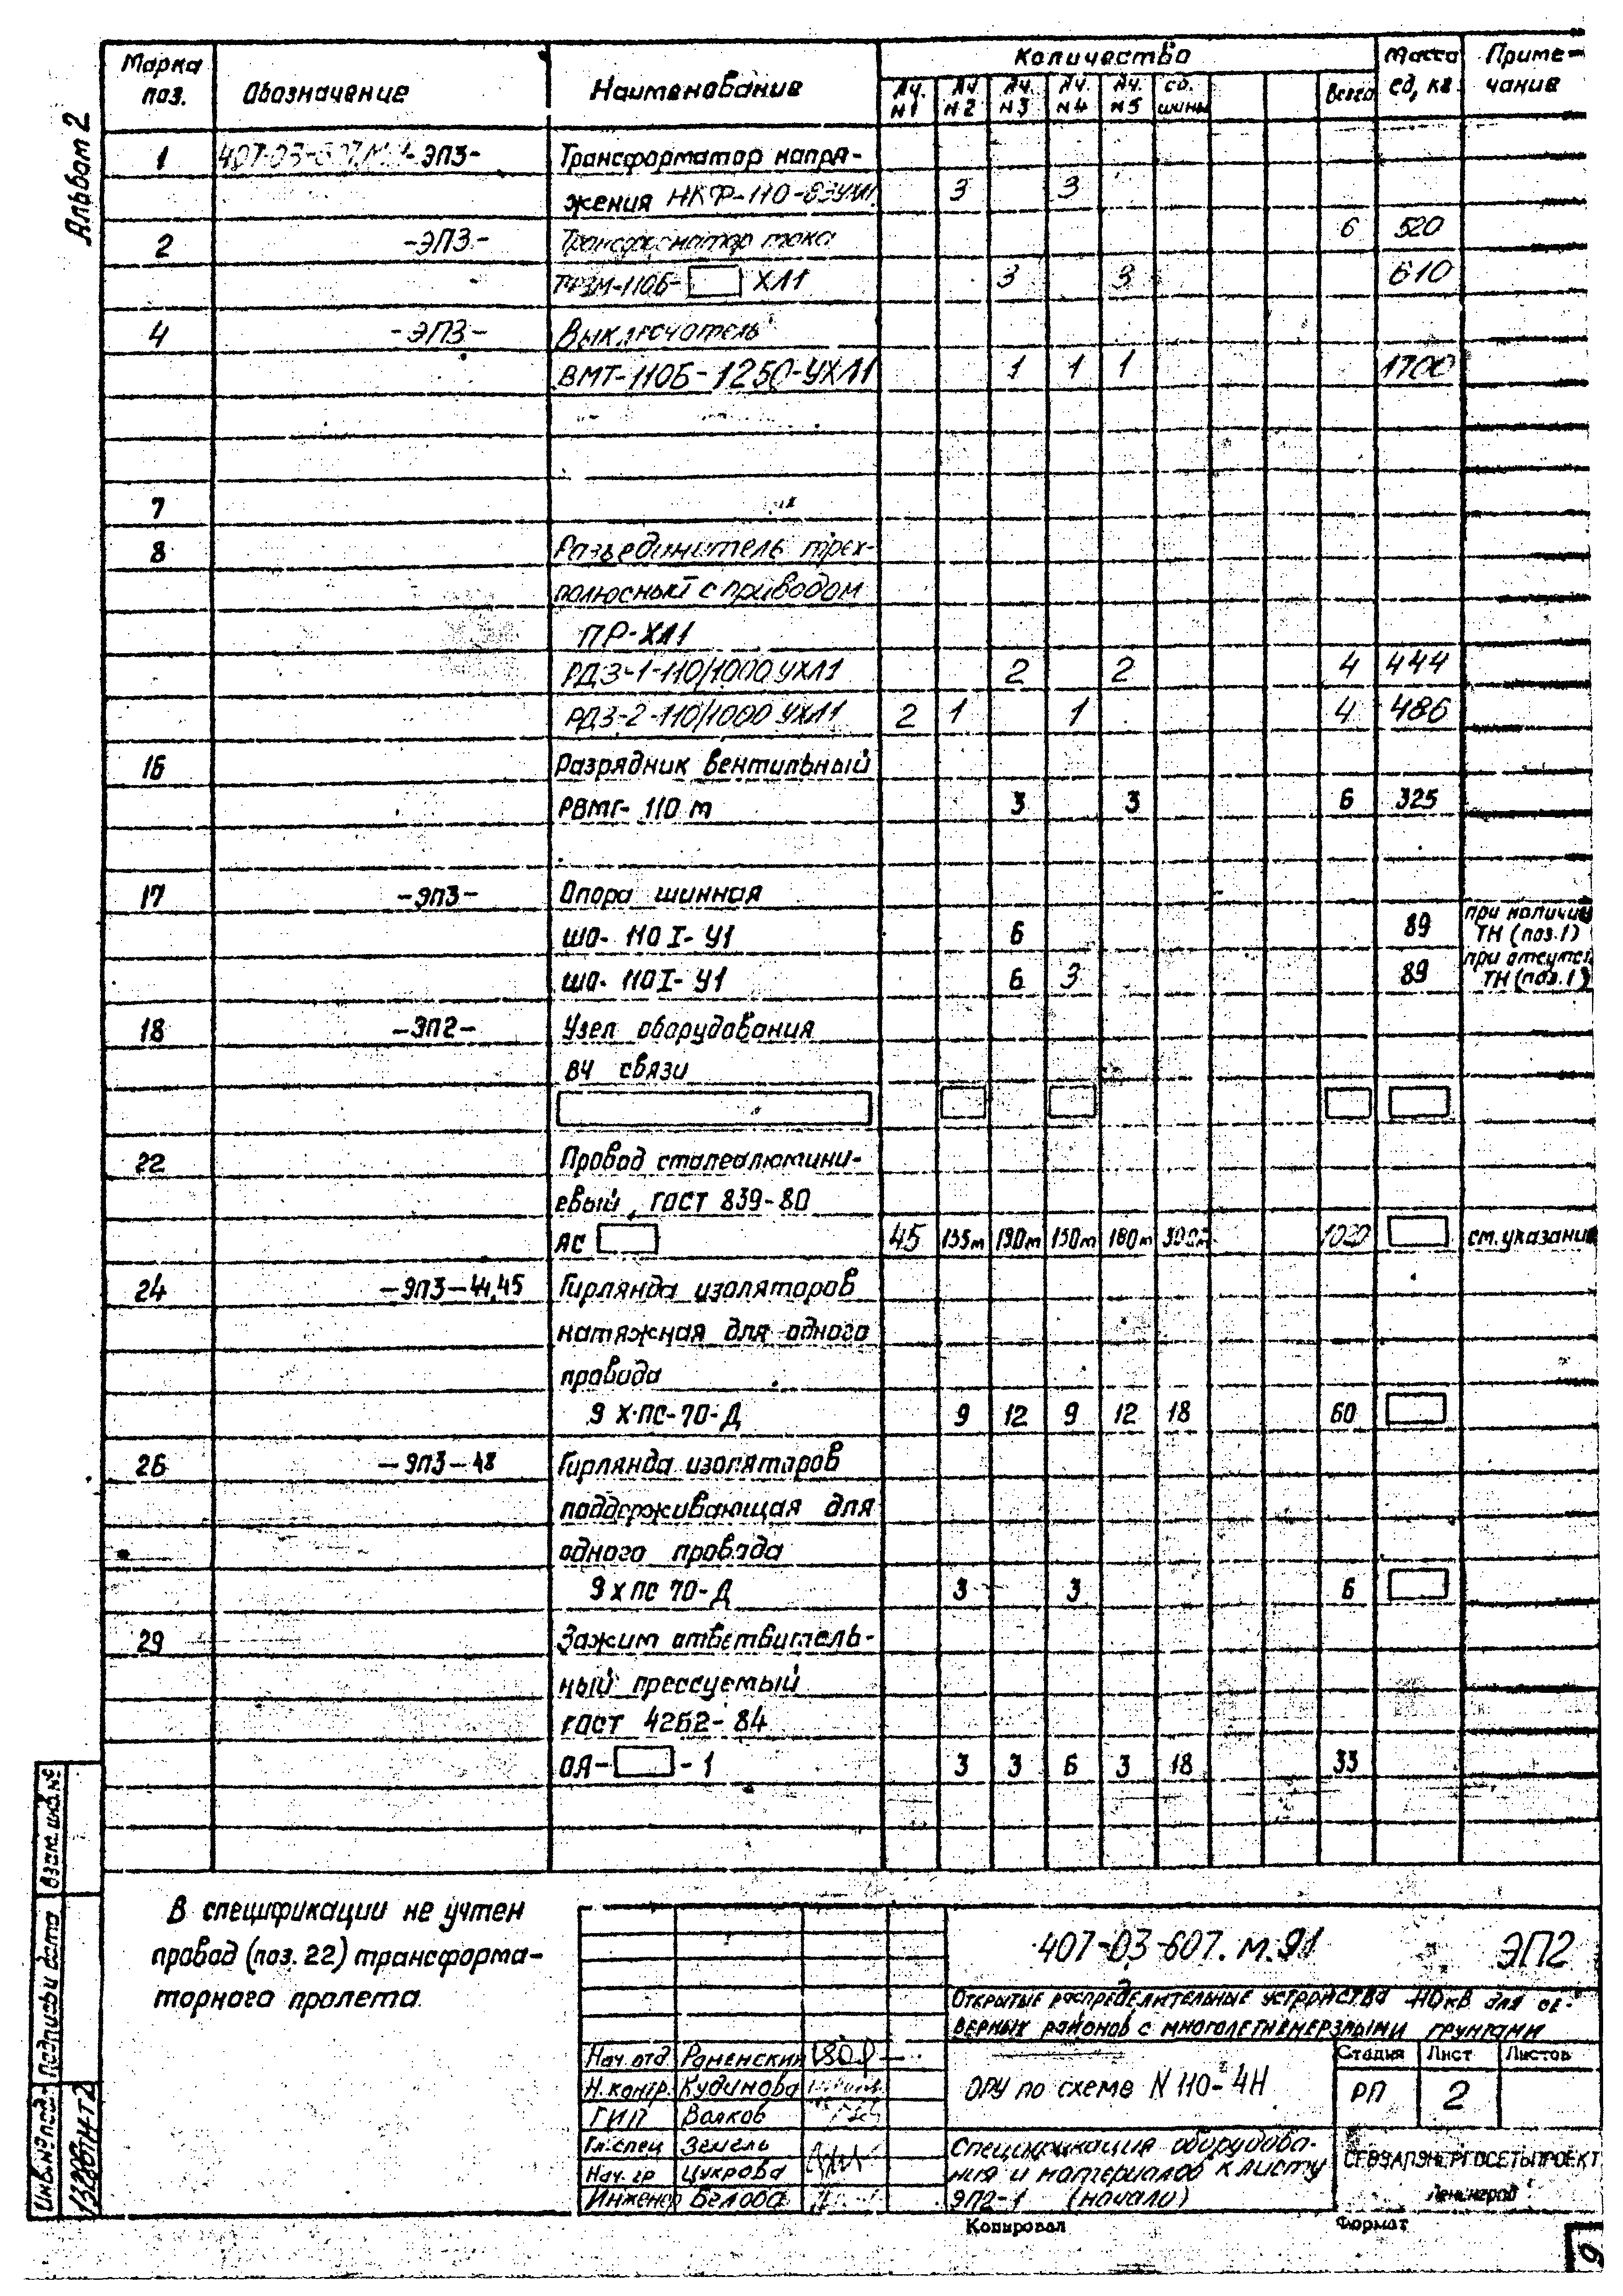 Альбом 2
Марка поз. Обозначение Наименование Количество Масса ед, кг. Приме- чание
Яч. N1 Яч. N2 Яч. N3 Яч. N4 Яч. N5 сб. шины Всего
1 -ЭП3- Трансформатор напря-
жения НКФ-110-83У1 3 3
2 -ЭП3- Трансформатор тока 6 520
ТФЗМ-110Б- ХЛ1 3 3 610
4 -ЭП3- Выключатель
ВМТ-110Б-1250-УХЛ1 1 1 1 1700
7
8 Разъединитель трех-
полюсный с приводом
ПР-ХЛ1
РДЗ-1-110/1000 УХЛ1 2 2 4 444
РДЗ-2-110/1000 УХЛ1 2 1 1 4 486
16 Разрядник вентильный
РВМГ-110 м 3 3 6 325
17 -ЭП3- Опора шинная
ШО-110 I-У1 6 89 при наличии ТН (поз.1)
ШО-110 I-У1 6 3 89 при отсутст. ТН (поз.1)
18 -ЭП2- Узел оборудования
ВЧ связи
22 Провод сталеалюмини-
евый, ГОСТ 839-80
АС 45 135м 190м 150м 180м 300м см. указания
24 -ЭП3-44,45 Гирлянда изоляторов
натяжная для одного
провода
9 х ПС-70-Д 9 12 9 12 18 60
26 -ЭП3-48 Гирлянда изоляторов
поддерживающая для
одного провода
9 х ПС 70-Д 3 3 6
29 Зажим ответвитель-
ный прессуемый
ГОСТ 4262-84
ОА- -1 3 3 6 3 18 33
В спецификации не учтен
провод (поз. 22) трансформа-
торного пролета.
407-03-607.м.91 ЭП2
Открытые распределительные устройства 110 кВ для се-
верных районов с многолетнемерзлыми грунтами
Нач. отд Роменский
Н. контр. Кудинова
ГИП Волков
Гл. спец Земель
Нач. гр Цукрова
Инженер Белова
ОРУ по схеме N 110-4Н
Стадия Лист Листов
РП 2
Спецификация оборудова-
ния и материалов к листу
ЭП2-1 (начало)
СЕВЗАПЭНЕРГОСЕТЬПРОЕКТ
Ленинград
Копировал Формат
Инв. № подл. Подпись и дата Взам. инв. №
9